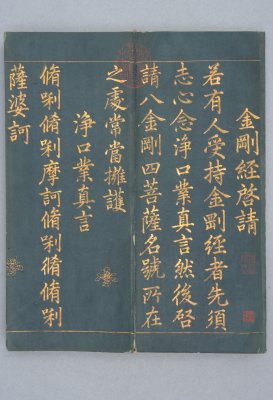 金剛經啓請
若有人受持金剛經者先須
志心念淨口業真言然後啓
請八金剛四菩薩名號所在
之處常當擁護
淨口業真言
脩唎脩唎摩訶脩唎脩脩唎
薩婆訶